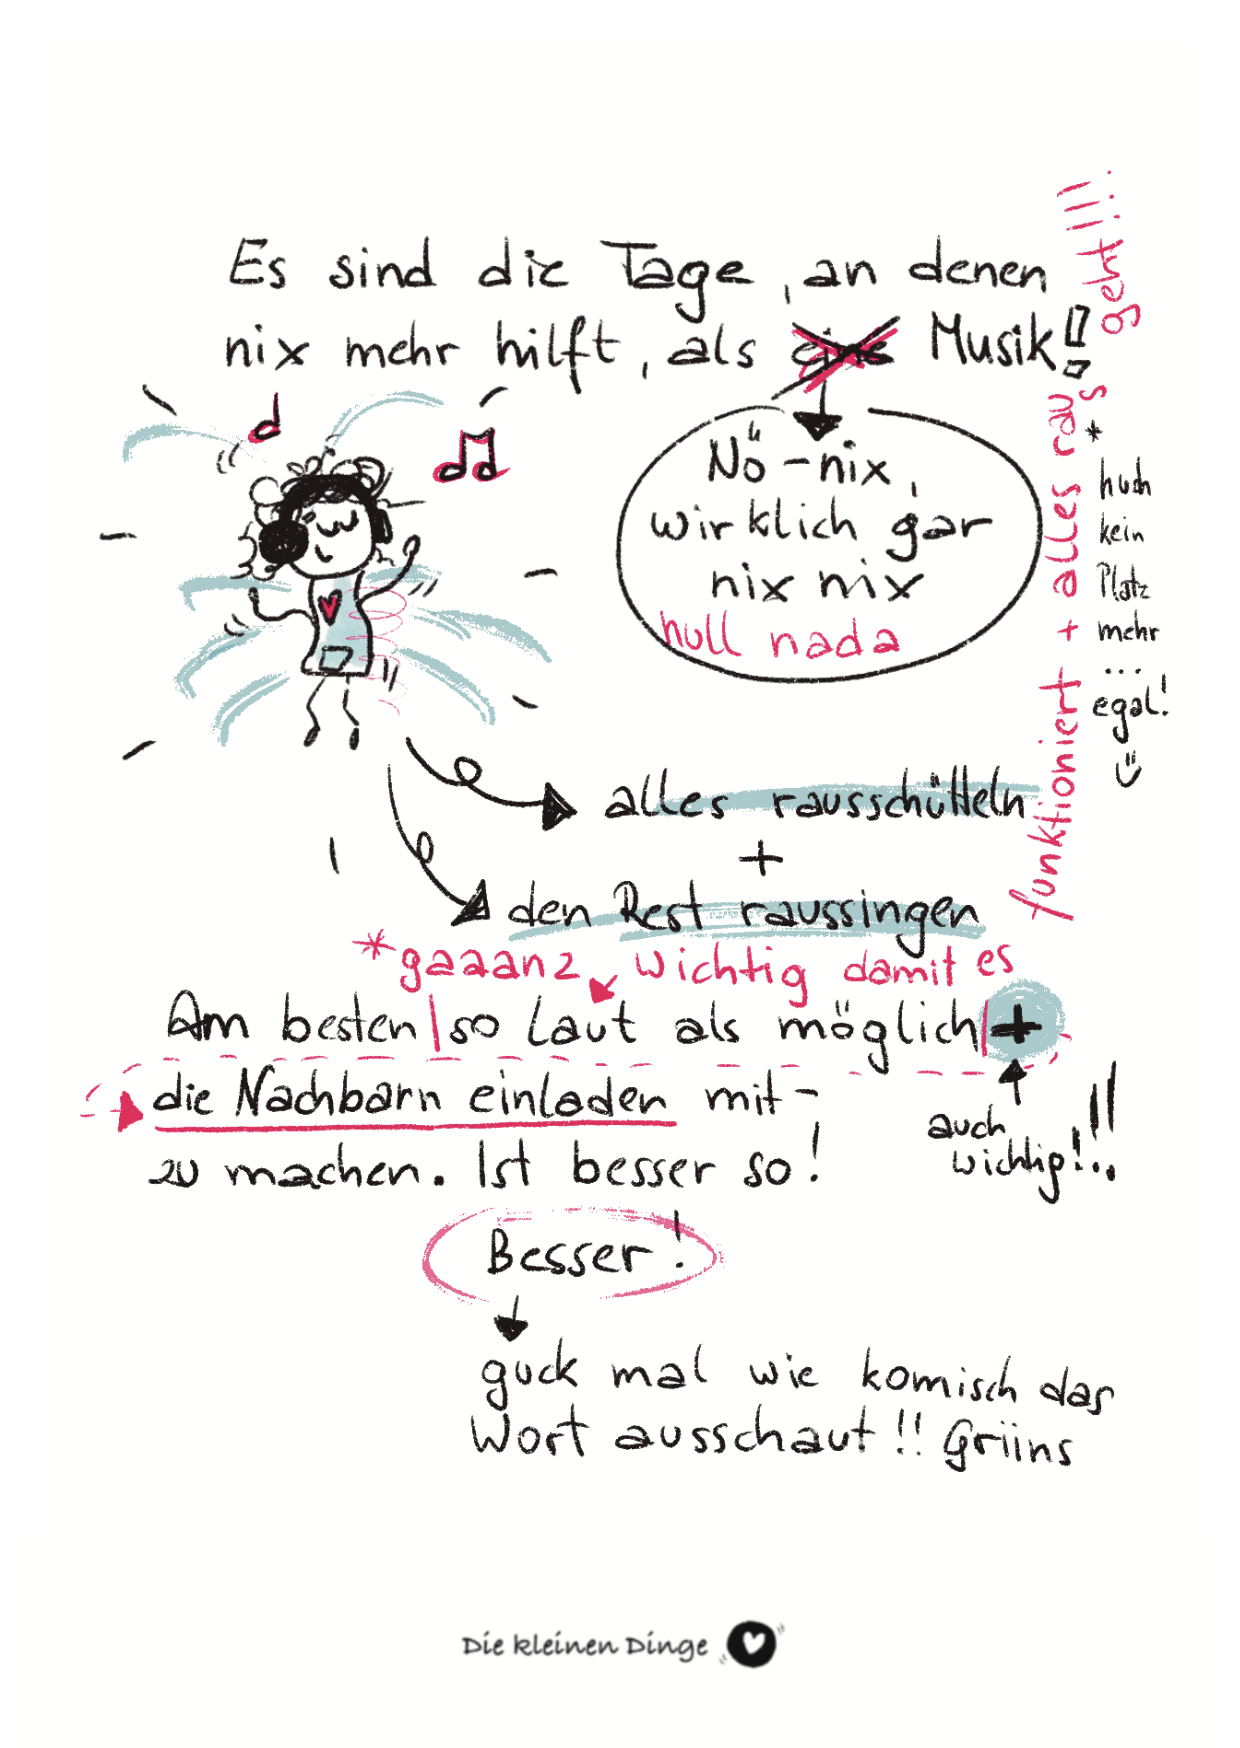 Es sind die Tage, an denen
nix mehr hilft, als eine Musik!!
Nö - nix,
wirklich gar
nix nix
null nada
alles rausschütteln
+
den Rest raussingen
*gaaanz wichtig damit es
funktioniert + alles raus
geht!!!
*
huch
kein
Platz
mehr
...
egal!
Am besten so laut als möglich +
die Nachbarn einladen mit-
zu machen. Ist besser so!
auch
wichtig!!!
Besser!
guck mal wie komisch das
Wort ausschaut!! Griins
Die kleinen Dinge